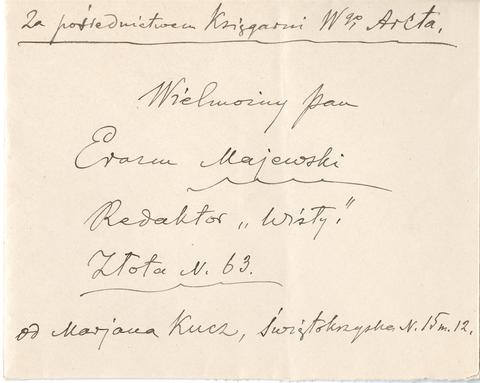 Za pośrednictwem Księgarni Wgo Arcta.
Wielmożny pan
Erazm Majewski
Redaktor „Wisły."
Złota N. 63.
od Marjana Kucz, Świętokrzyska N. 15 m. 12.